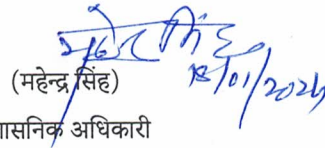 महेन्द्र सिंह
18/01/2024
(महेन्द्र सिंह)
ासनिक अधिकारी